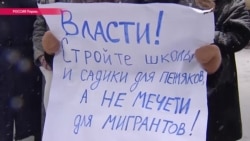 РОССИЯ Пермь
ВЛАСТИ!
Стройте школы
и садики для пермяков,
А НЕ МЕЧЕТИ
для МИГРАНТОВ!